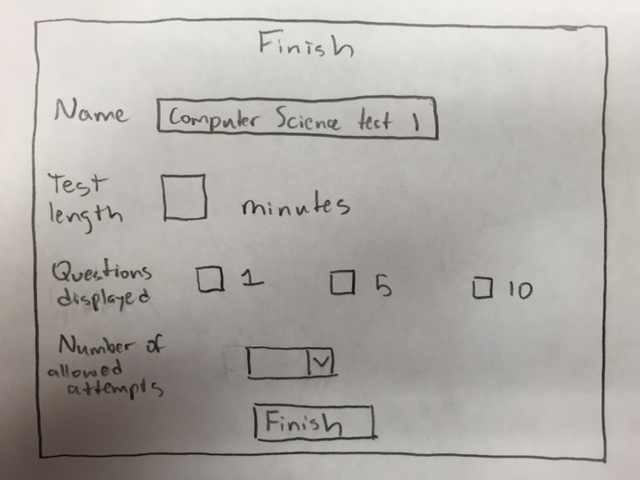 Finish
Name Computer Science test 1
Test
length minutes
Questions
displayed 1 5 10
Number of
allowed
attempts
Finish